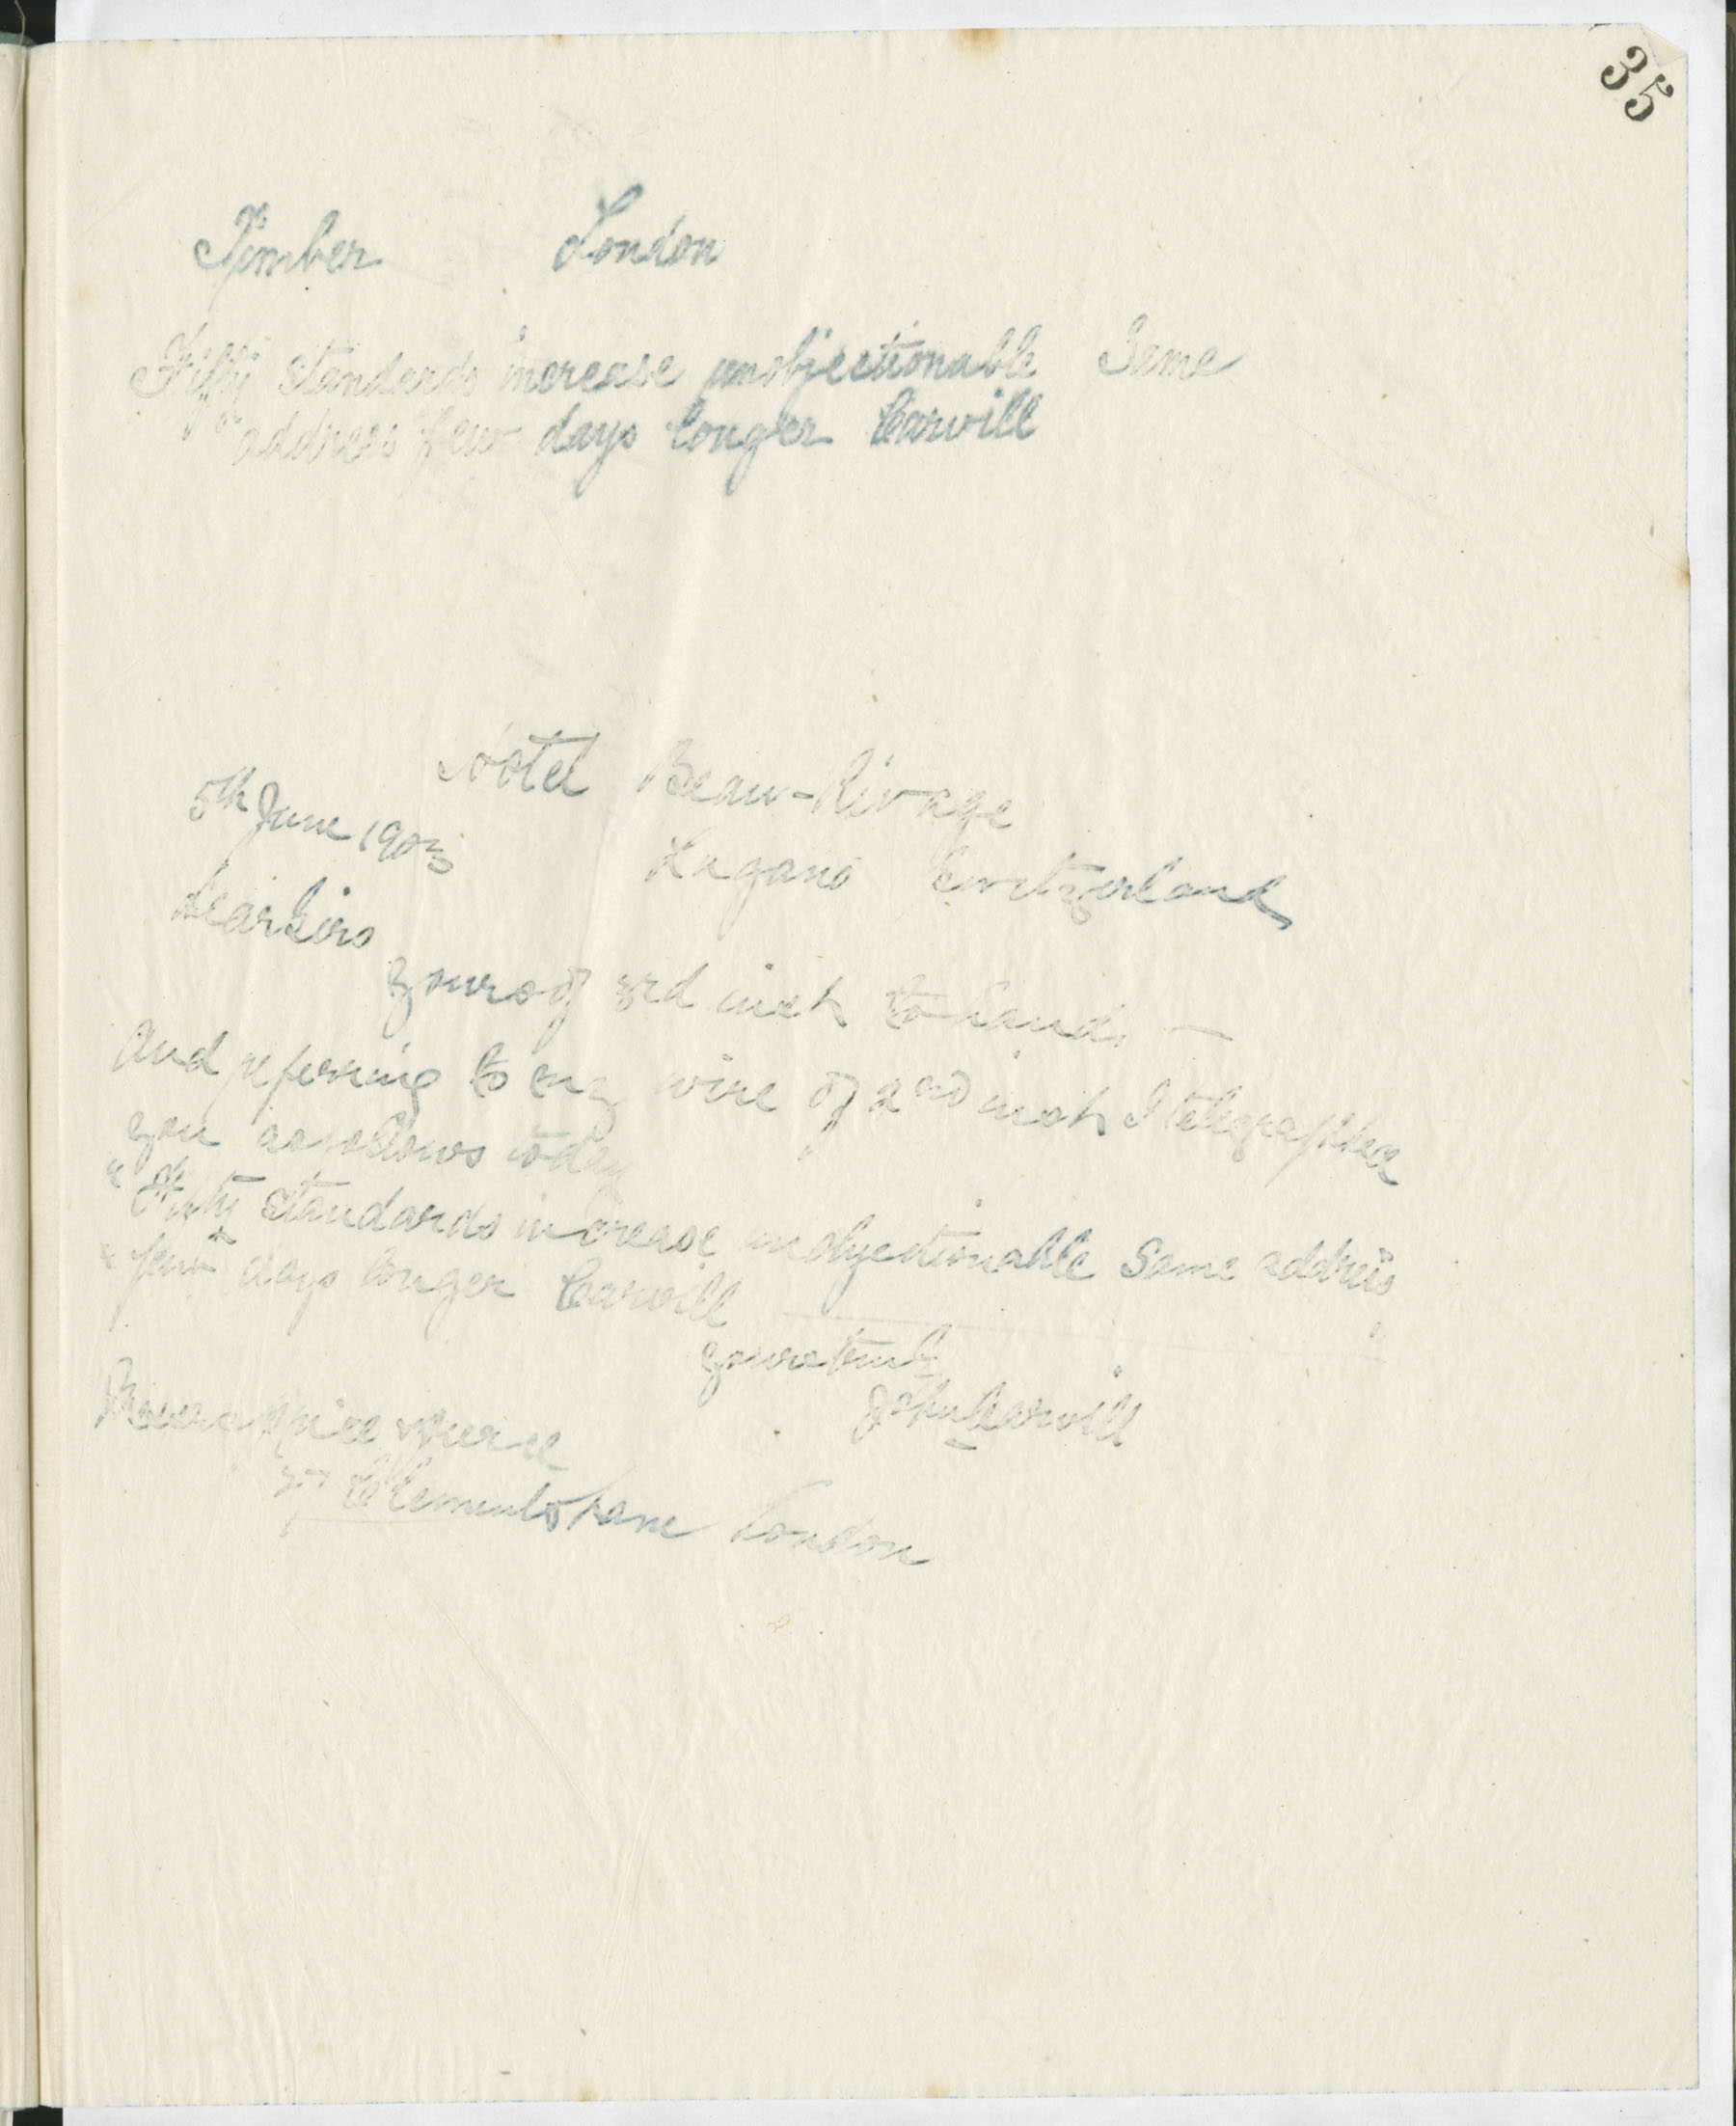 35
Timber London
Fifty standards increase unobjectionable Same
address few days longer Carvill
Hotel Beau-Rivage
5th June 1903
Lugano Switzerland
Dear Sirs
Yours of 3rd inst to hand. —
And referring to my wire of 2nd inst I telegraphed
you as follows today
"Fifty standards increase unobjectionable Same address
"few days longer Carvill
Yours truly
John Carvill
Price & Pierce
27 Clements Lane London